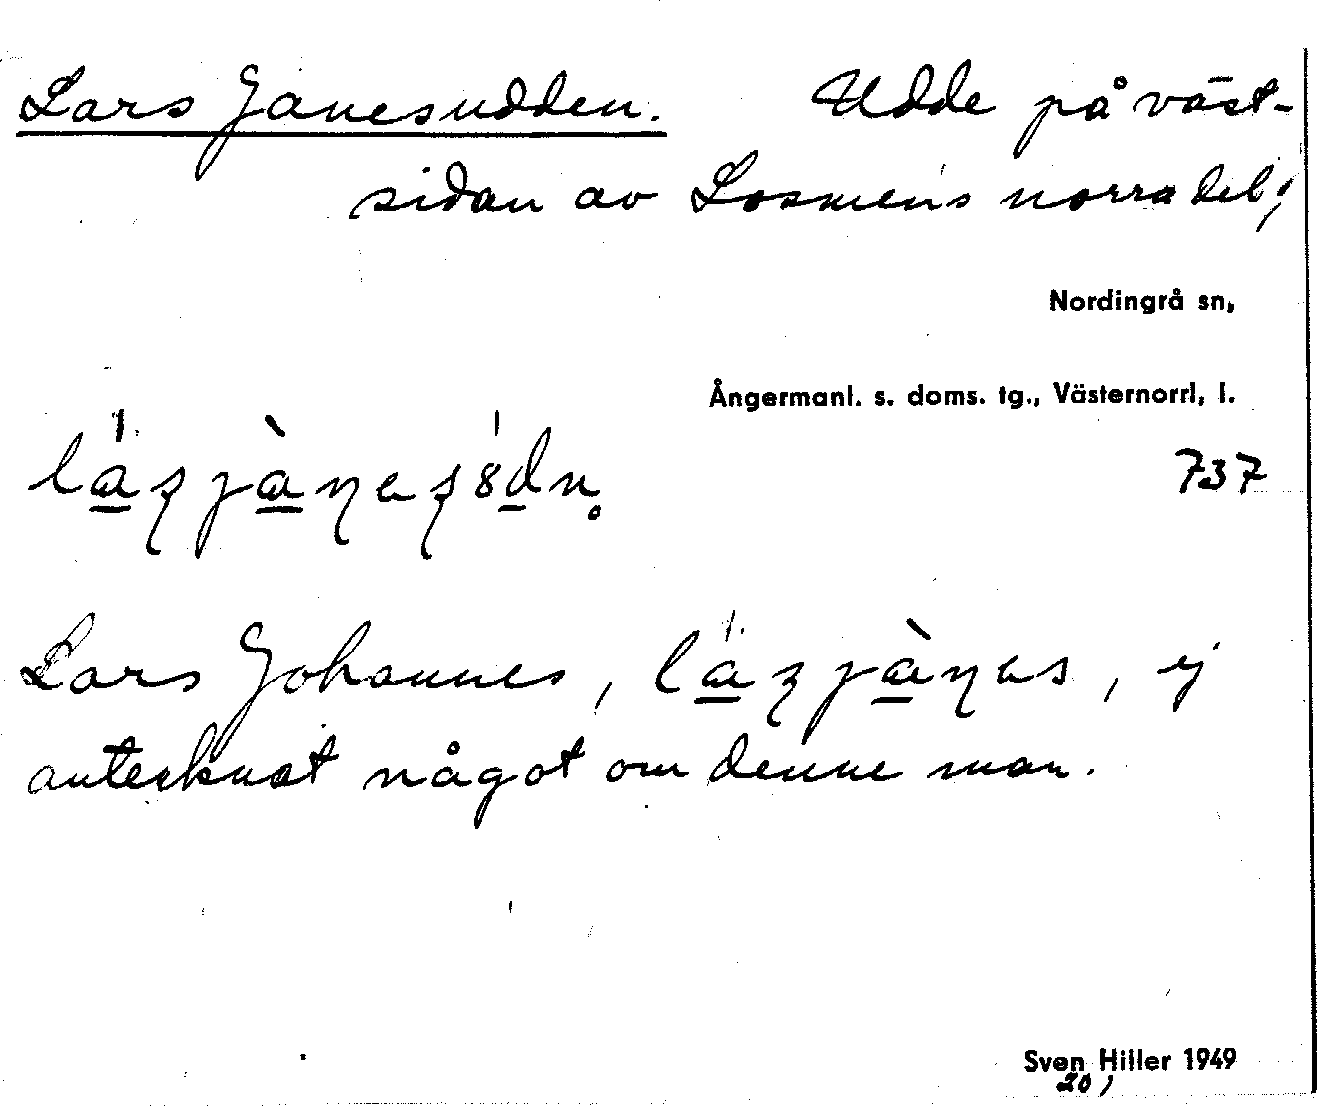 Lars Janesudden. Udde på väst-
sidan av Losmens norra del;
Nordingrå sn,
Ångermanl. s. doms. tg., Västernorrl, l.
737
Lars Johannes, , ej
antecknat något om denne man.
Sven Hiller 1949
20,